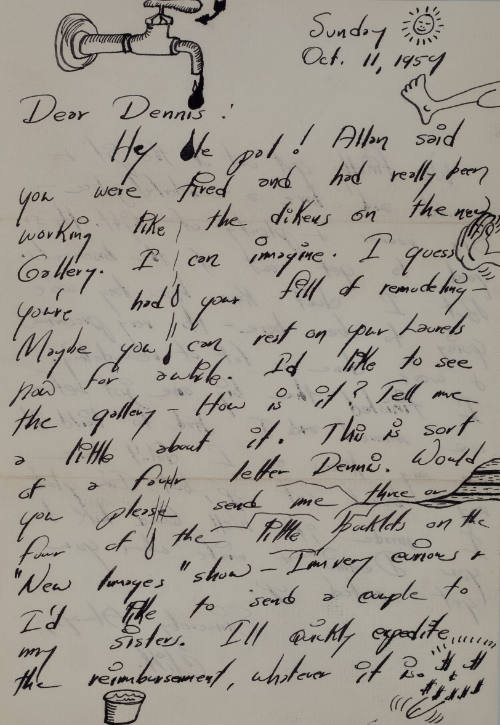 Sunday
Oct. 11, 1959
Dear Dennis!
Hey ole pal! Allan said
you were tired and had really been
working like the dikens on the new
Gallery. I can imagine. I guess
you've had your fill of remodeling —
Maybe you can rest on your Laurels
now for awhile. I'd like to see
the gallery — How is it? Tell me
a little about it. This is sort
of a favor letter Dennis. Would
you please send me three or
four of the little booklets on the
"New Images" show — I'm very curious +
I'd like to send a couple to
my sisters. I'll quickly expedite
the reimbursement, whatever it is. $ $
$$$$